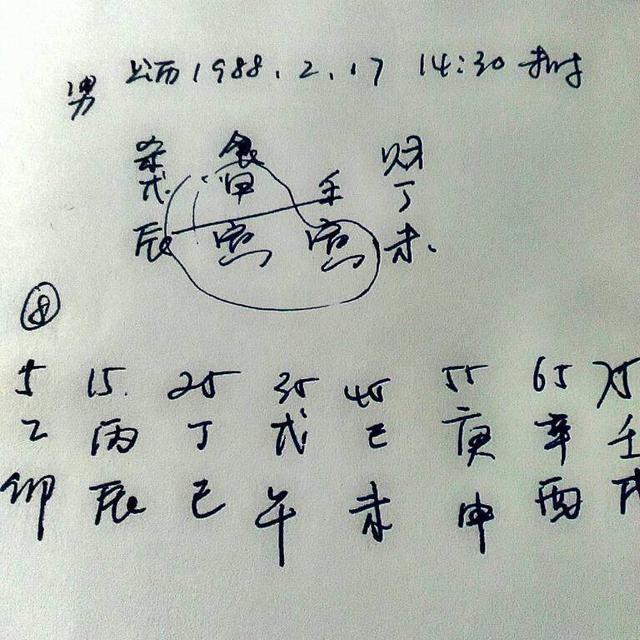 男 1988.2.17 14:30
杀 食 财
戊 甲 壬 丁
辰 寅 寅 未.
⑧
5 15. 25 35 45 55 65 75
乙 丙 丁 戊 己 庚 辛 壬
卯 辰 巳 午 未 申 酉 戌